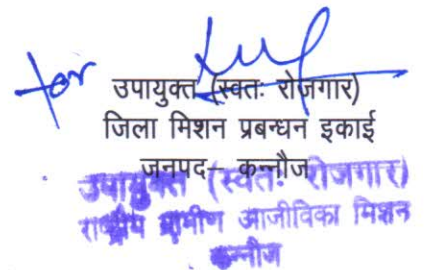 for
उपायुक्त (स्वतः रोजगार)
जिला मिशन प्रबन्धन इकाई
जनपद– कन्नौज
उपायुक्त (स्वतः रोजगार)
राष्ट्रीय ग्रामीण आजीविका मिशन
कन्नौज